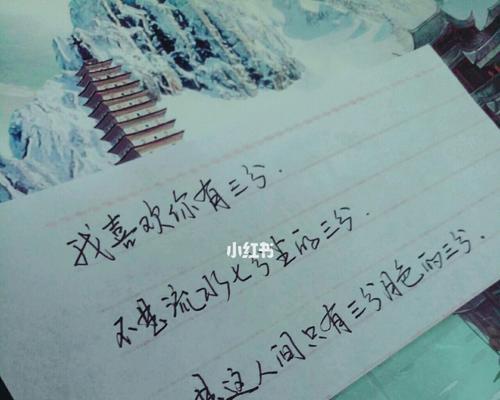 我喜欢你有三分.
小红书
不是流水七分尘的三分.
是这人间只有三分月色的三分.